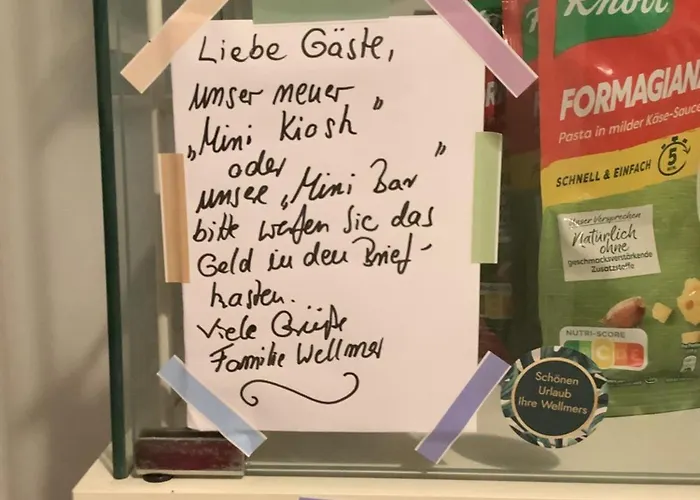 Liebe Gäste,
unser neuer
„Mini Kiosk"
oder
unsee „Mini Bar"
bitte werfen Sie das
Geld in den Brief-
kasten.
Viele Grüße
Familie Wellmer
Knorr
FORMAGIAN
Pasta in milder Käse-Sauce
SCHNELL & EINFACH 5
Unser Versprechen
Natürlich
ohne
geschmacksverstärkende
Zusatzstoffe
NUTRI-SCORE
Schönen
Urlaub
Ihre Wellmers